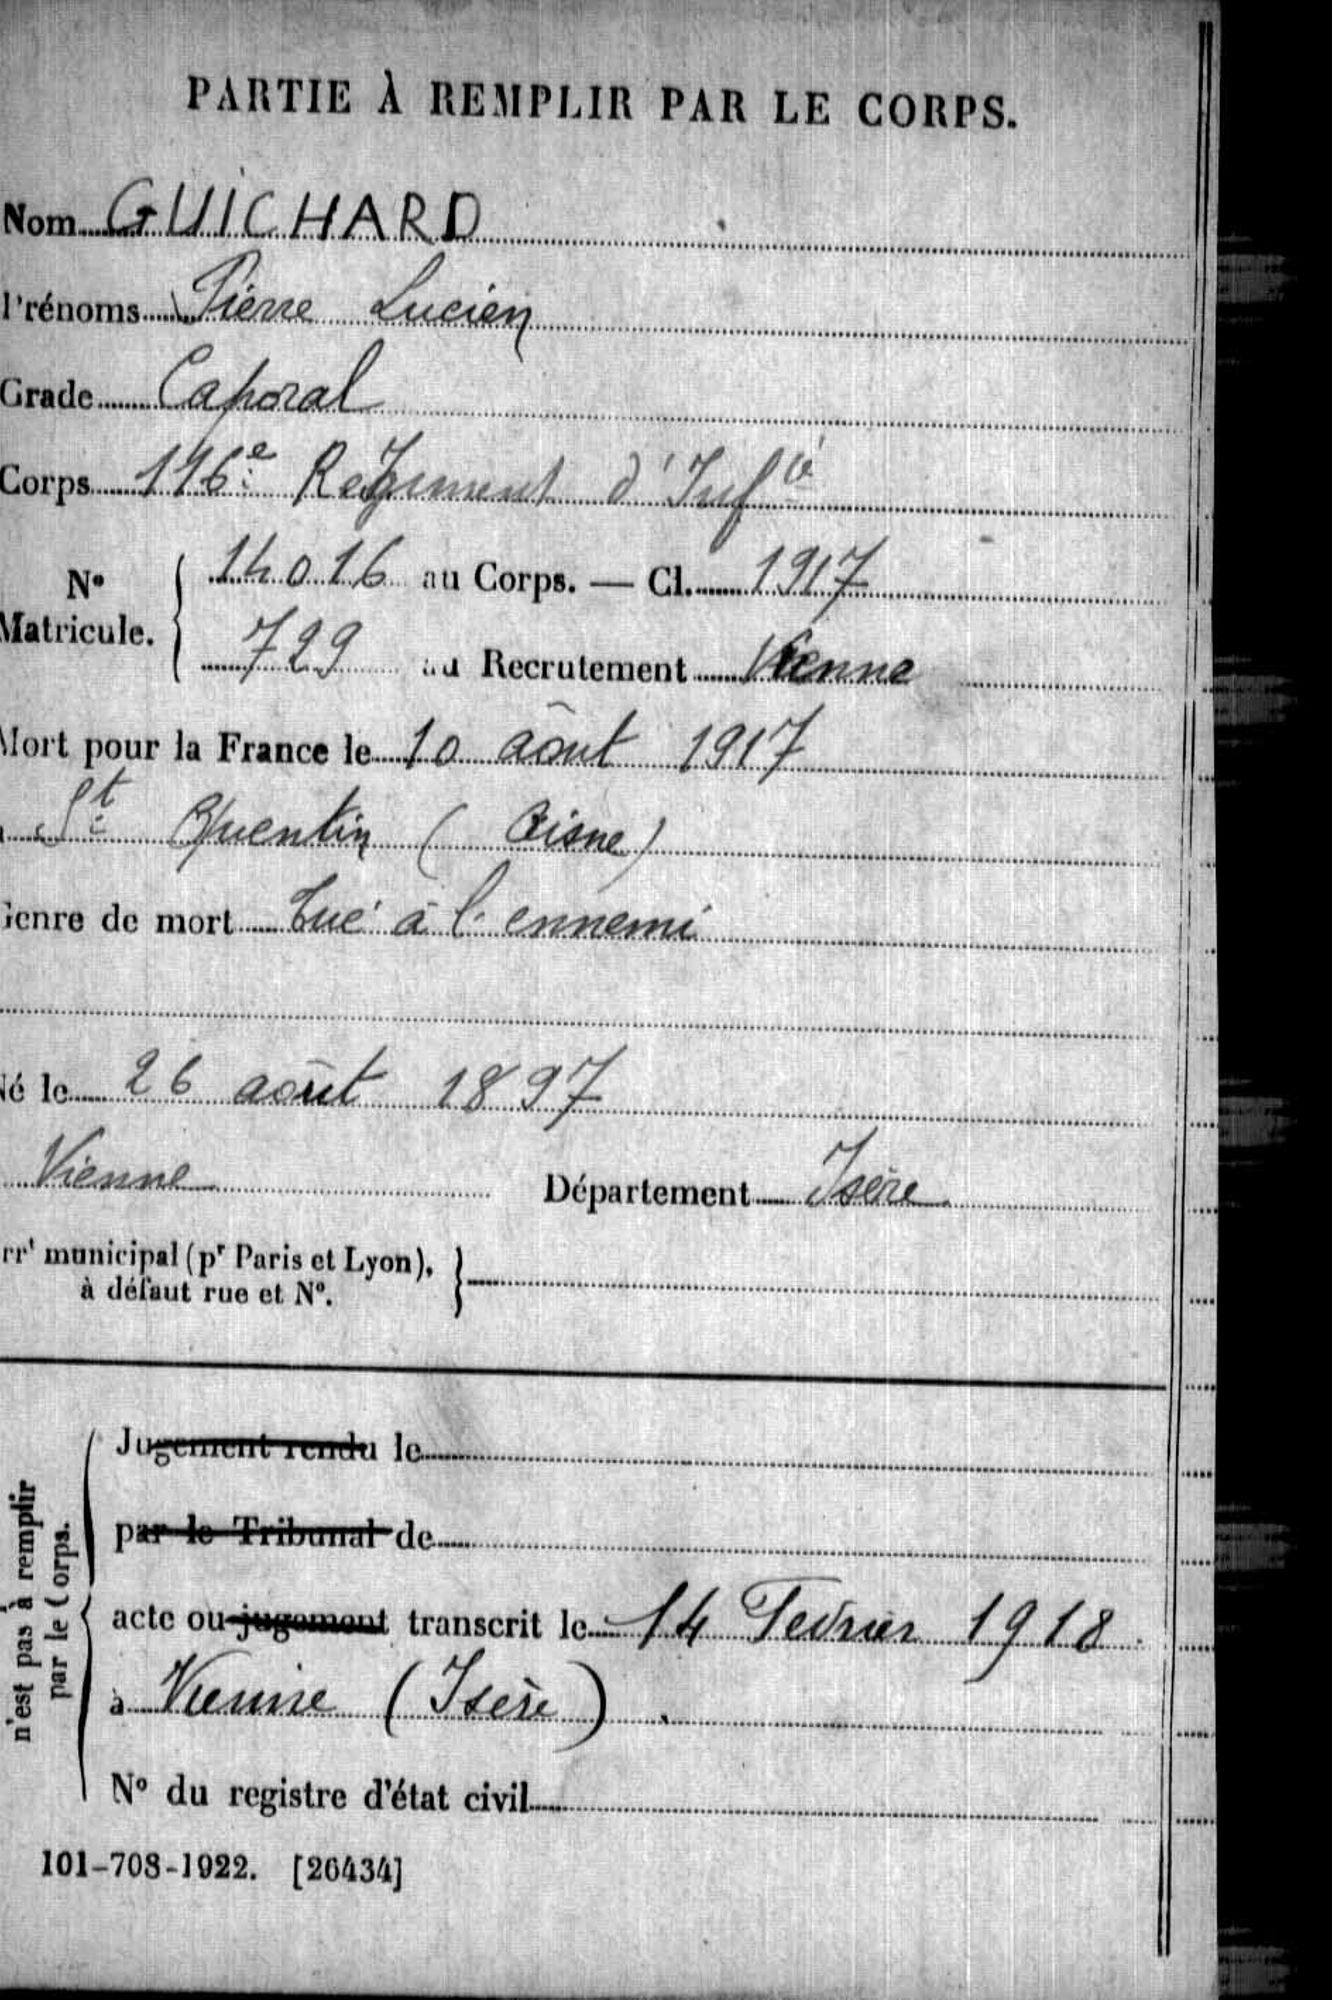 PARTIE À REMPLIR PAR LE CORPS.
Nom GUICHARD
Prénoms Pierre Lucien
Grade Caporal
Corps Régiment d'Inf ie
N° Matricule. { 14016 au Corps. — Cl. 1917
729 au Recrutement Vienne
Mort pour la France le 10 août 1917
St Quentin (Aisne)
Genre de mort Tué à l'ennemi
Né le 26 août 1897
Vienne Département Isère
rr' municipal (pr Paris et Lyon), }
à défaut rue et N°.
n'est pas à remplir
par le Corps.
Jugement rendu le
par le Tribunal de
acte ou jugement transcrit le 14 Fevrier 1918.
à Vienne (Isère).
N° du registre d'état civil
101-708-1922. [26434]